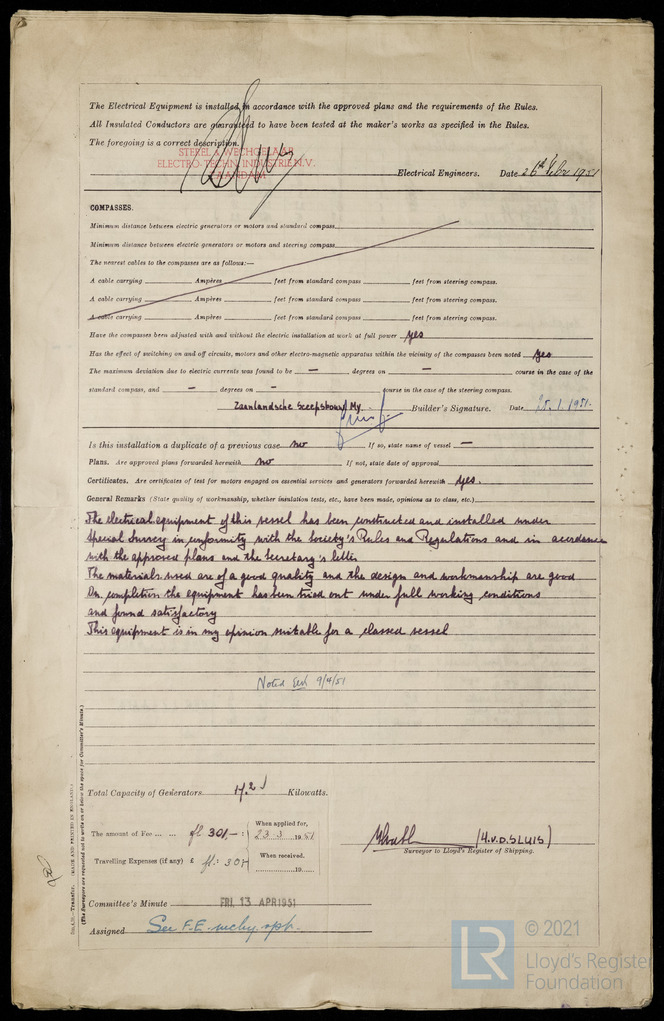 The Electrical Equipment is installed in accordance with the approved plans and the requirements of the Rules.
All Insulated Conductors are guaranteed to have been tested at the maker's works as specified in the Rules.
The foregoing is a correct description.
ELECTRO-TECHN. INDUSTRIE N.V.
ZAANDAM
Electrical Engineers. Date 26th Febr 1951
COMPASSES.
Minimum distance between electric generators or motors and standard compass
Minimum distance between electric generators or motors and steering compass
The nearest cables to the compasses are as follows:—
A cable carrying Ampères feet from standard compass feet from steering compass.
A cable carrying Ampères feet from standard compass feet from steering compass.
A cable carrying Ampères feet from standard compass feet from steering compass.
Have the compasses been adjusted with and without the electric installation at work at full power yes
Has the effect of switching on and off circuits, motors and other electro-magnetic apparatus within the vicinity of the compasses been noted yes
The maximum deviation due to electric currents was found to be — degrees on — course in the case of the
standard compass, and — degrees on — course in the case of the steering compass.
Zaanlandsche Scheepsbouw My. Builder's Signature. Date 25.1.1951.
Is this installation a duplicate of a previous case no If so, state name of vessel —
Plans. Are approved plans forwarded herewith no If not, state date of approval
Certificates. Are certificates of test for motors engaged on essential services and generators forwarded herewith yes.
General Remarks (State quality of workmanship, whether insulation tests, etc., have been made, opinions as to class, etc.)
The electrical equipment of this vessel has been constructed and installed under
Special Survey in conformity with the Society's Rules and Regulations and in accordance
with the approved plans and the Secretary's letter
The materials used are of a good quality and the design and workmanship are good
On completion the equipment has been tried out under full working conditions
and found satisfactory
This equipment is in my opinion suitable for a classed vessel
Noted 9/4/51
Total Capacity of Generators Kilowatts.
The amount of Fee ... ... fl 301,- : When applied for, 23.3.1951
Travelling Expenses (if any) £ fl: 30: When received. 19
(H.V.D.SLUIS)
Surveyor to Lloyd's Register of Shipping.
Committee's Minute FRI. 13 APR 1951
Assigned See F.E. mchy. rpt.
(MADE AND PRINTED IN ENGLAND.)
(The Surveyors are requested not to write on or below the space for Committee's Minute.)
LR
© 2021
Lloyd's Register
Foundation